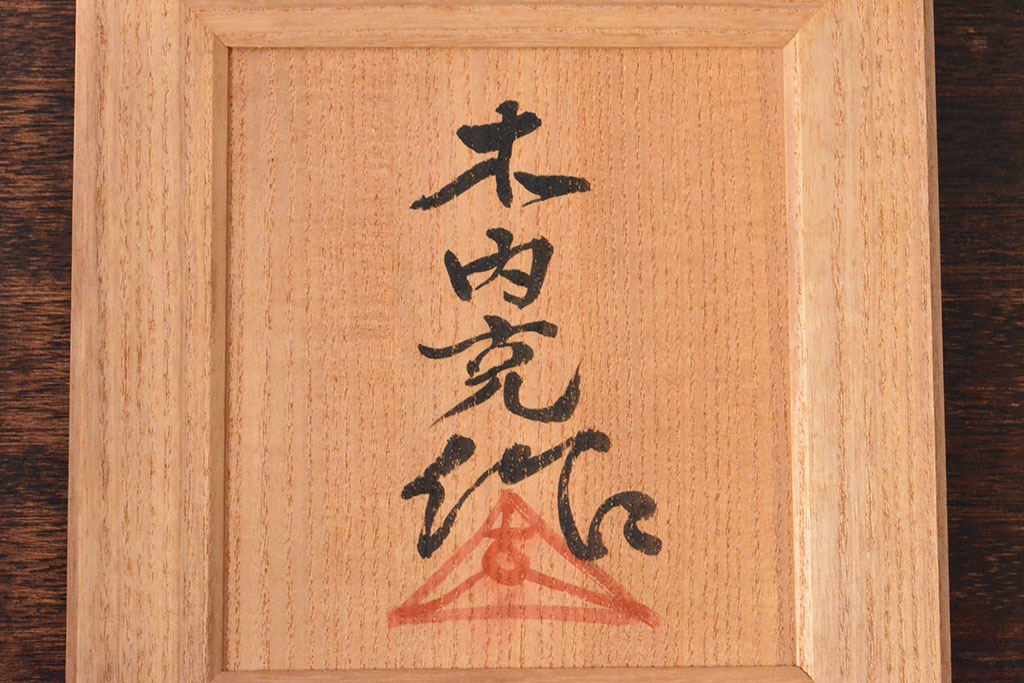 木内克作